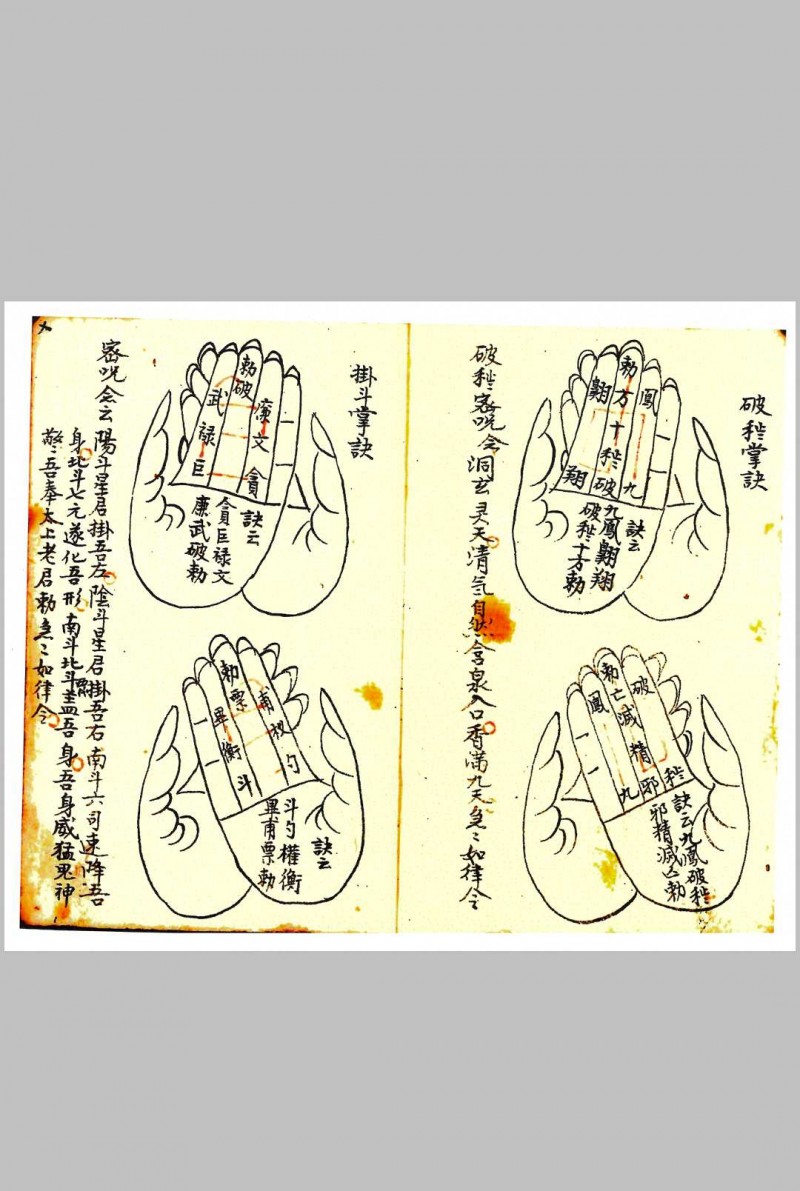 破秽掌訣
勅
方
十
秽
破
翺
翔
鳳
九
訣云
九鳳翺翔
破秽十方勅
勅
亡
減
精
邪
鳳
九
破
秽
訣云九鳳破秽
邪精減亡勅
破秽宻咒会洞玄灵天清气自然含泉入口香满九天急〻如律令
掛斗掌訣
勅
破
武
禄
巨
廉
文
貪
訣云
貪巨禄文
廉武破勅
勅
票
畢
衡
斗
甫
权
勺
訣云
斗勺權衡
畢甫票勅
宻咒会云
陽斗星君掛吾左陰斗星君掛吾右南斗六司速降吾
身北斗七元遂化吾形南斗北斗盖吾身吾身威猛鬼神
驚吾奉太上老君勅急〻如律令